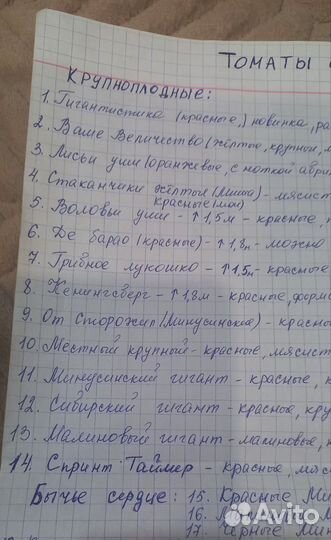 Томаты
Крупноплодные:
1. Гигантистика (красные,) новинка, ра
2. Ваше Величество (жёлтые, крупные, м
3. Лисьи уши (оранжевые, с ноткой абри
4. Стаканчики жёлтые (Миша) - мясист
красные (мои)
5. Воловьи уши - ↑ 1,5м - красные,
6. Де барао (красные) - ↑ 1,8м - можно
7. Грибное лукошко - ↑ 1,5м - красные
8. Кенингсберг - ↑ 1,8м - красные, форм
9. От Сторожил (Минусинские) - красны
10. Местный крупный - красные, мясист
11. Минусинский гигант - красные,
12. Сибирский гигант - красные, кру
13. Малиновый гигант - малиновые,
14. Спринт Таймер - красные, мяс
Бычье сердце: 15. Красные Ми
16.
17. Чёрные Мин
Avito